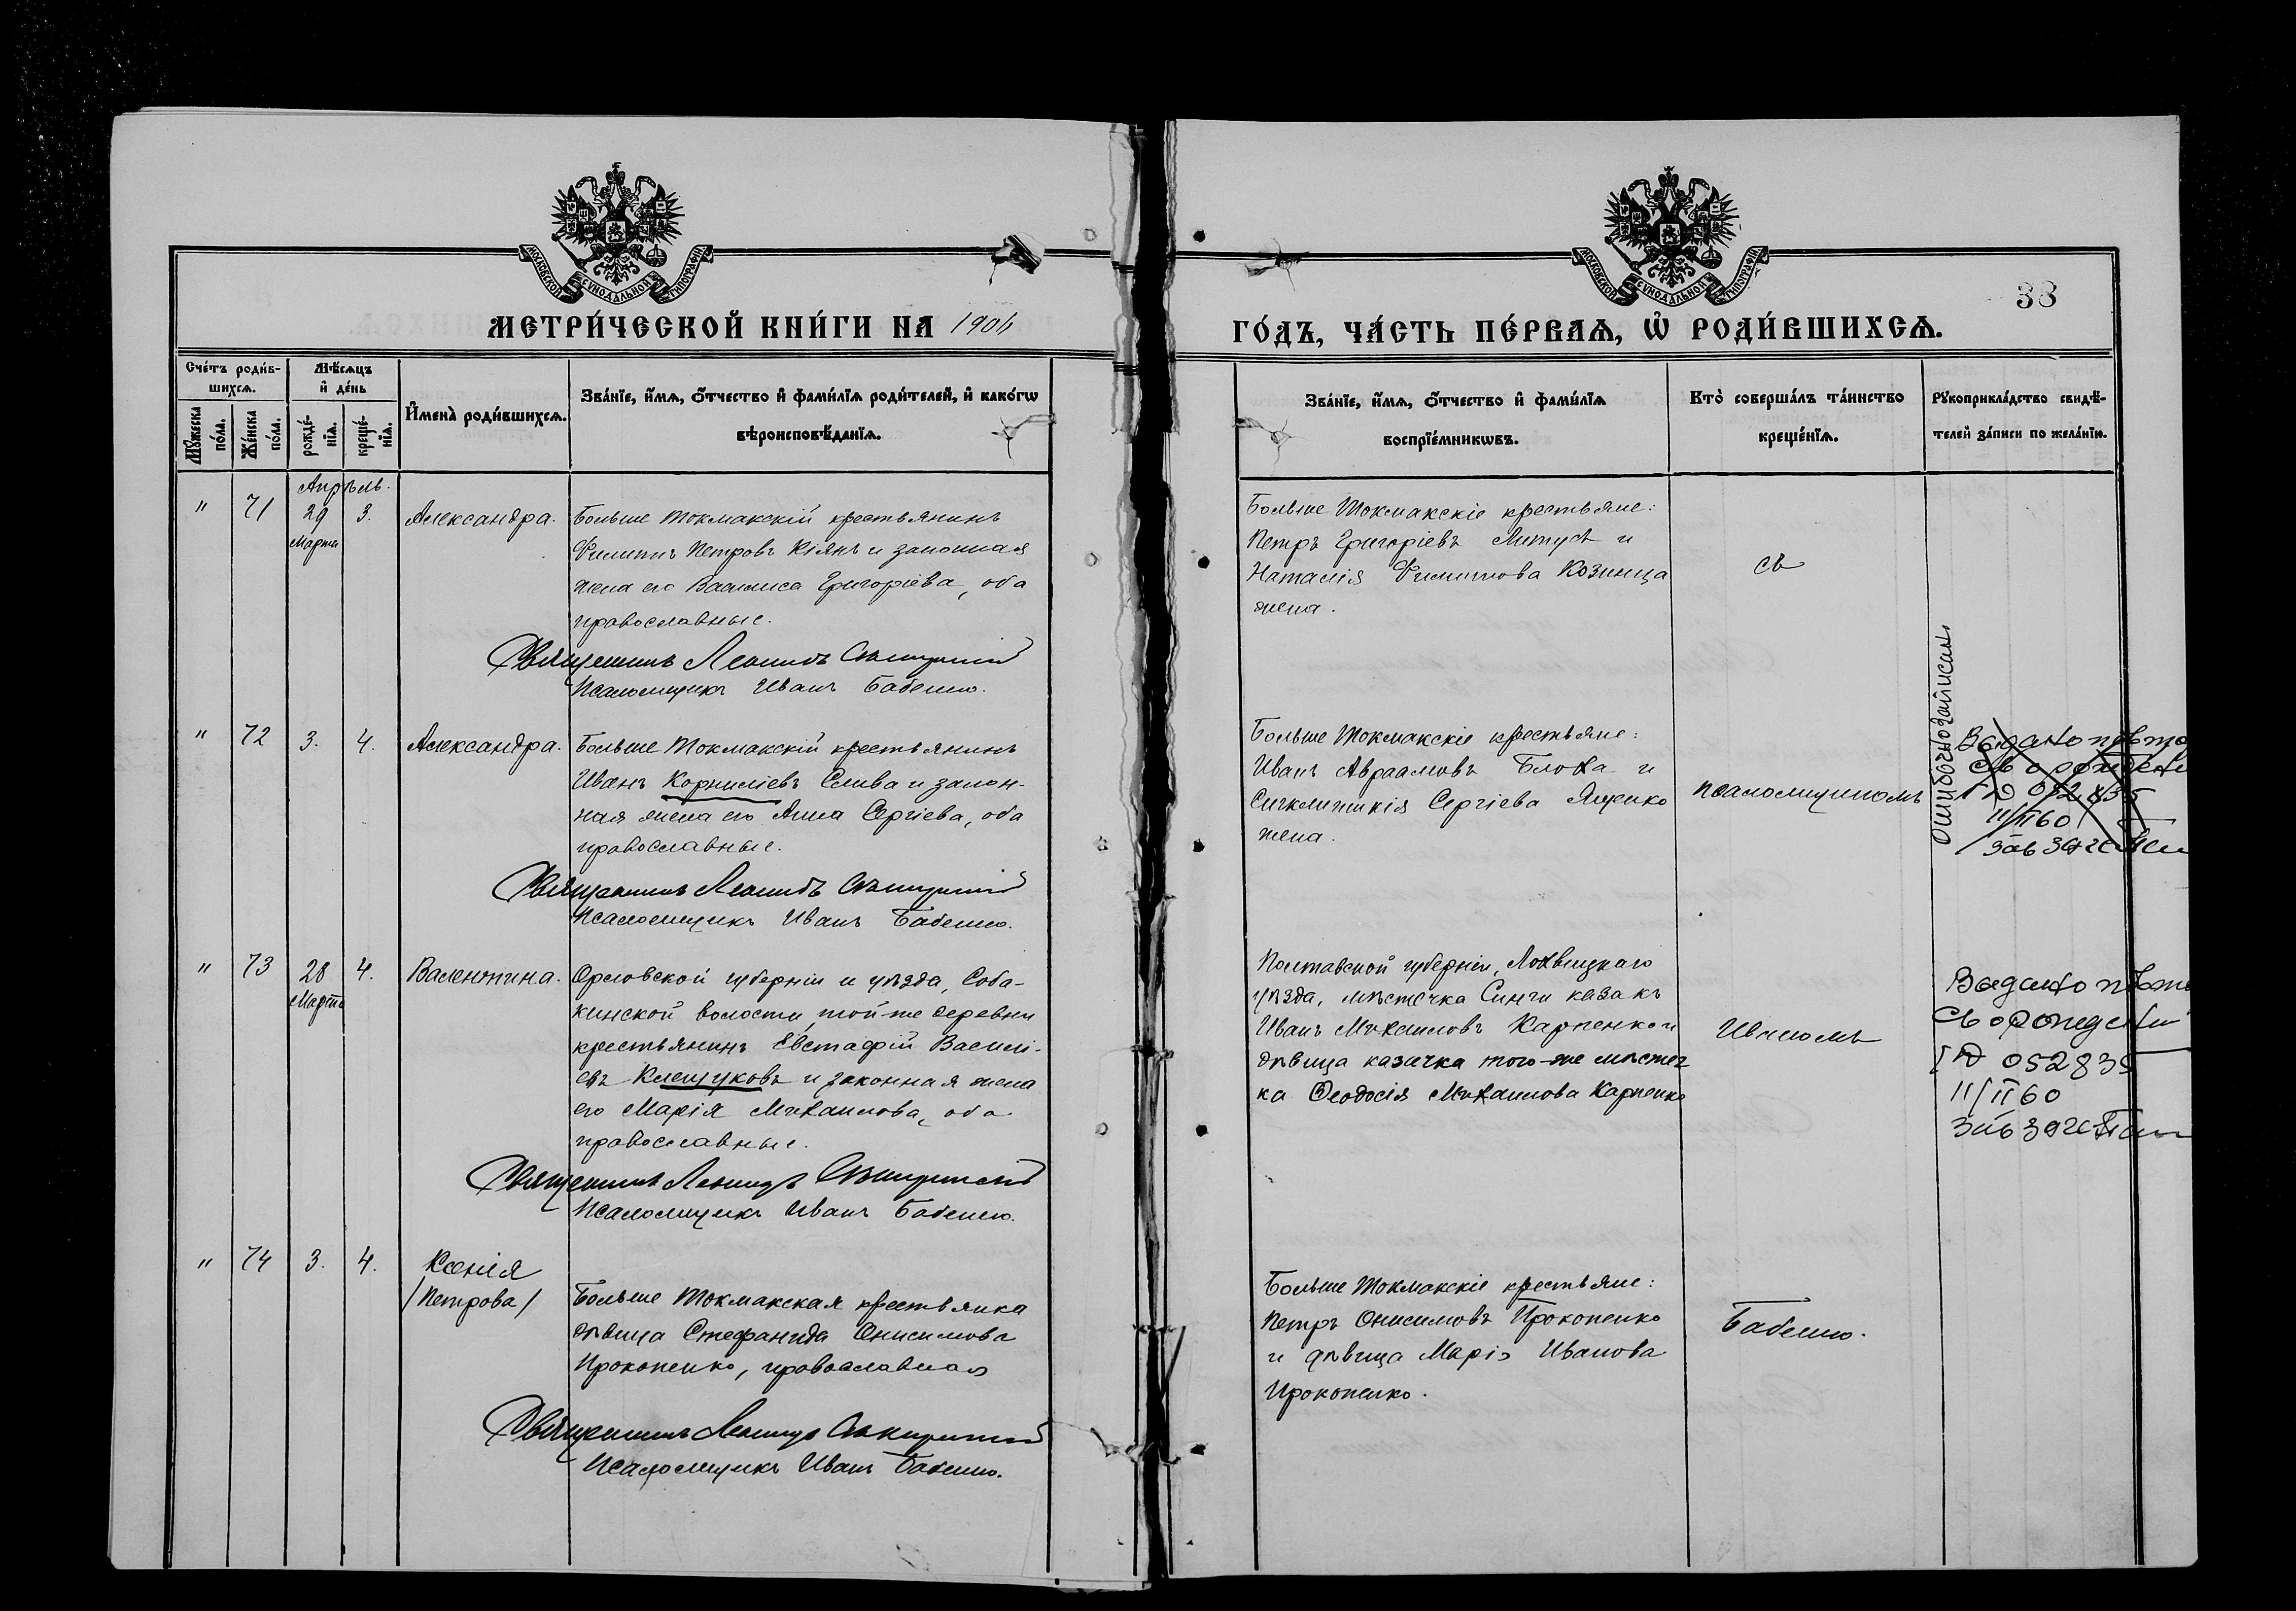 МОСКОВСКОЙ СѴНОДАЛЬНОЙ ТИПОГРАФІИ
МОСКОВСКОЙ СѴНОДАЛЬНОЙ ТИПОГРАФІИ
38
МЕТРИ́ЧЕСКОЙ КНИ́ГИ НА 1906
ГО́ДЪ, ЧА́СТЬ ПЕ́РВАѦ, Ѡ РОДИ́ВШИХСѦ.
Сче́тъ роди́в-
шихсѧ.
Мѣ́сѧцъ
и де́нь
Мꙋ́жеска по́ла.
Же́нска по́ла.
рожде́-
нїѧ.
креще́-
нїѧ.
Имена̀ роди́вшихсѧ.
Зва́нїе, и́мѧ, о́тчество и фами́лїѧ роди́телей, и како́гѡ
вѣроисповѣ́данїѧ.
Зва́нїе, и́мѧ, о́тчество и фами́лїѧ
воспрїе́мникѡвъ.
Кто̀ соверша́лъ та́инство
креще́нїѧ.
Рꙋкоприкла́дство свидѣ́-
телей за́писи по жела́нїю.
Апрѣль.
" 71 29 3. Александра.
Марта
Больше Токмакскій крестьянинъ
Филиппъ Петровъ Кіянъ и законная
жена его Василиса Григоріева, оба
православные.
Священникъ Леонидъ
Псаломщикъ Иванъ Бабенко.
Больше Токмакскіе крестьяне:
Петръ Григоріевъ Литусъ и
Наталія Филиппова Козинца
жена.
съ
" 72 3. 4. Александра.
Больше Токмакскій крестьянинъ
Иванъ Корниліевъ Слива и закон-
ная жена его Анна Сергіева, оба
православные.
Священникъ Леонидъ
Псаломщикъ Иванъ Бабенко.
Больше Токмакскіе крестьяне:
Иванъ Авраамовъ Блоха и
Синклитикія Сергіева Ященко
жена.
псаломщикомъ
Ошибочно записано
Видано повто
св о рождени
ІД 052835
11/ІІ 60
" 73 28 4. Валентина.
Марта
Орловской губерніи и уѣзда, Соба-
кинской волости, той-же деревни
крестьянинъ Евстафій Василі-
евъ Клещуковъ и законная жена
его Марія Михаилова, оба
православные.
Священникъ Леонидъ
Псаломщикъ Иванъ Бабенко.
Полтавской губерніи, Лохвицкаго
уѣзда, мѣстечка Синчи казакъ
Иванъ Михаиловъ Карпенко и
дѣвица казачка того-же мѣстеч
ка Ѳеодосія Михаилова Карпенко
Иваномъ
Видано повто
св о рождени
ІД 052835
11/ІІ 60
" 74 3. 4. Ксенія
/Петрова/
Больше Токмакская крестьянка
дѣвица Стефанида Онисимова
Прокопенко, православная
Священникъ Леонидъ
Псаломщикъ Иванъ Бабенко.
Больше Токмакскіе крестьяне:
Петръ Онисимовъ Прокопенко
и дѣвица Марія Иванова
Прокопенко.
Бабенко.